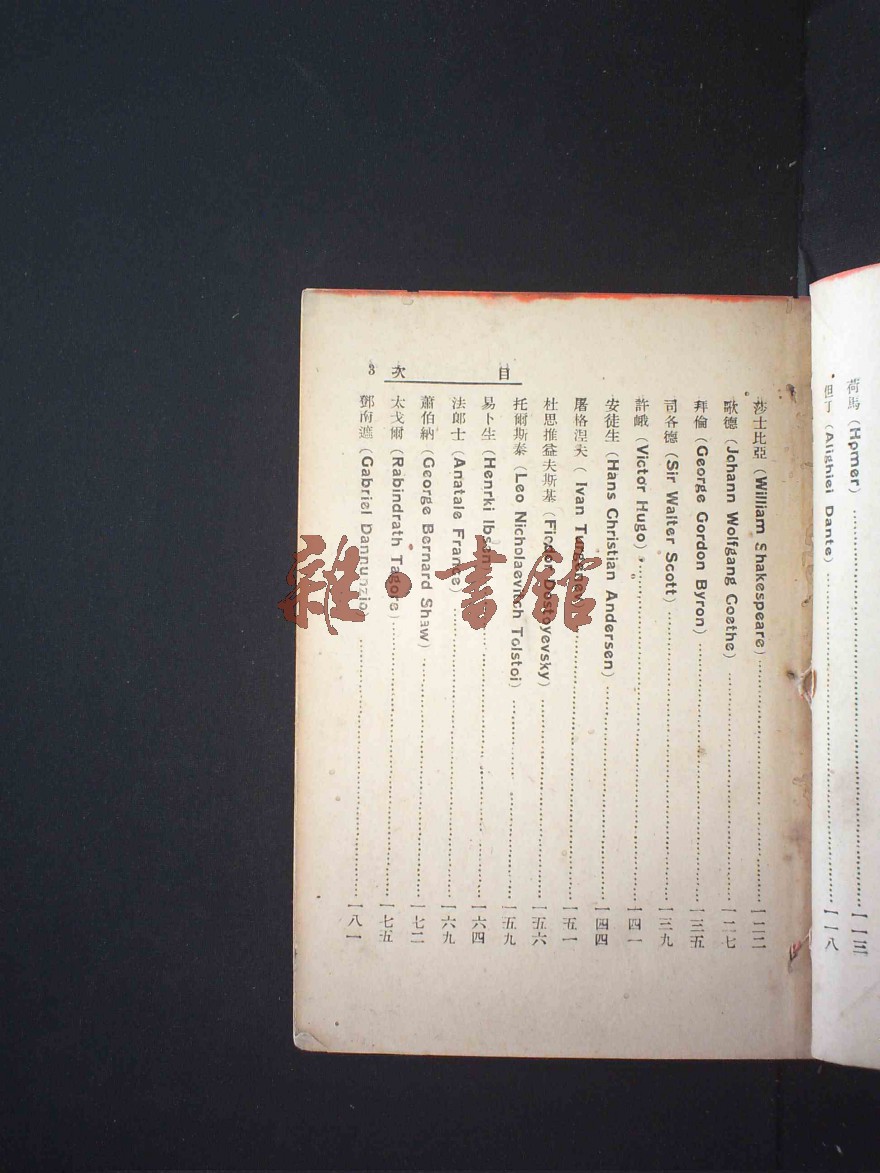 荷馬 (Homer) 一一三
但丁 (Alighiei Dante) 一一八
目次 3
莎士比亞 (William Shakespeare) 一二二
歌德 (Johann Wolfgang Goethe) 一二七
拜倫 (George Gordon Byron) 一三五
司各德 (Sir Walter Scott) 一三九
許峨 (Victor Hugo) 一四一
安徒生 (Hans Christian Andersen) 一四四
屠格涅夫 (Ivan Turgenev) 一五一
杜思推益夫斯基 (Fiodor Dostoyevsky) 一五六
托爾斯泰 (Leo Nicholaevitch Tolstoi) 一五九
易卜生 (Henrki Ibsen) 一六四
法郎士 (Anatale France) 一六九
蕭伯納 (George Bernard Shaw) 一七二
太戈爾 (Rabindrath Tagore) 一七五
鄧南遮 (Gabriel Dannunzio) 一八一
雜·書館